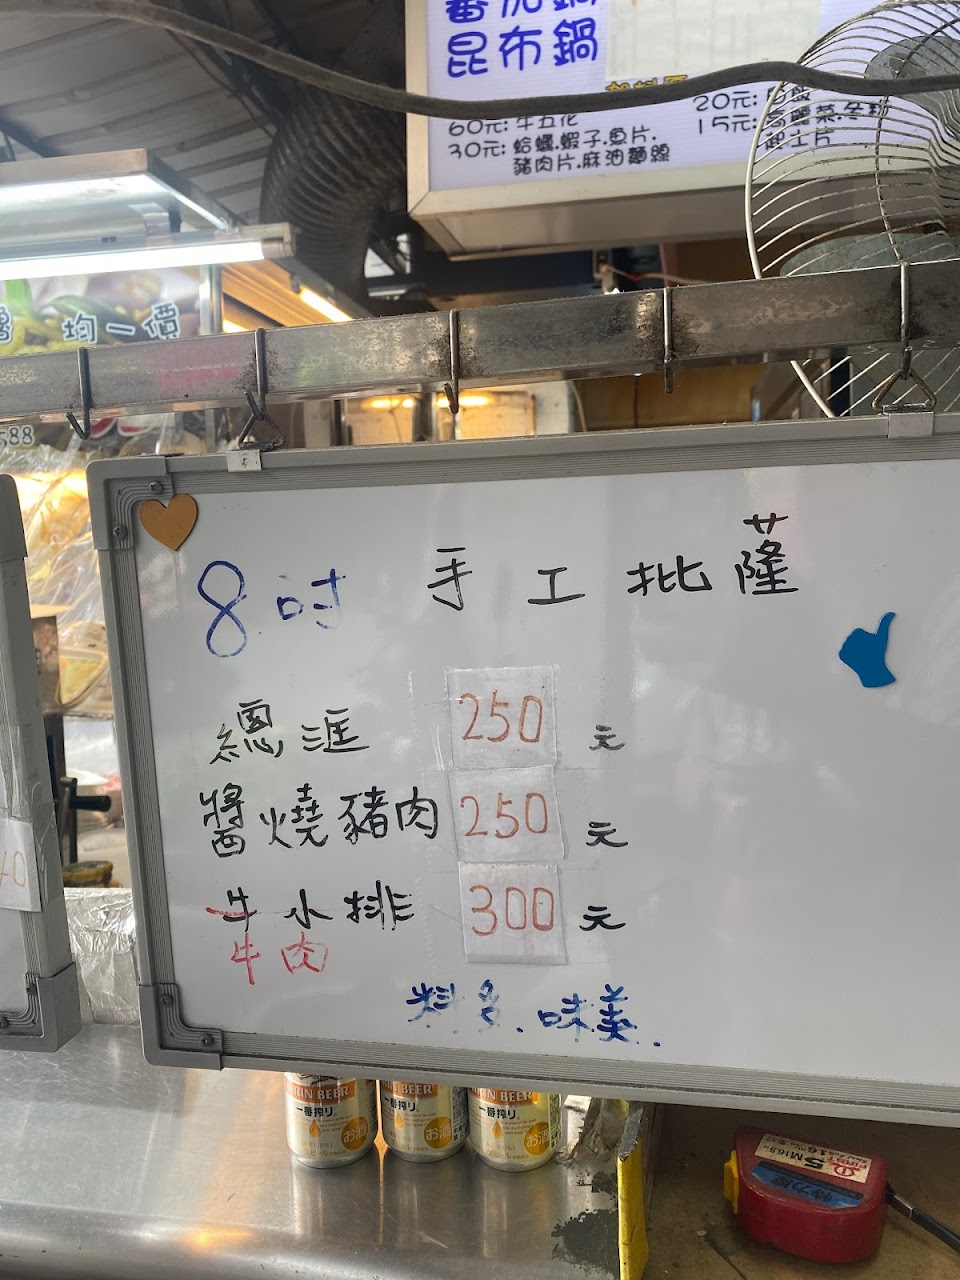 昆布鍋
60元: 牛五花
30元: 蛤蠣.蝦子.魚片.
豬肉片.麻油麵線
20元:
15元: 高麗菜.冬粉
起士片
均一價
588
8吋 手工批薩
總滙 250 元
醬燒豬肉 250 元
牛小排 300 元
牛肉
料多.味美.
KIRIN BEER
一番搾り
お酒
RIN BEER
一番搾り
お酒
RIN BEER
一番搾り
お酒
5M16.5
FIRST